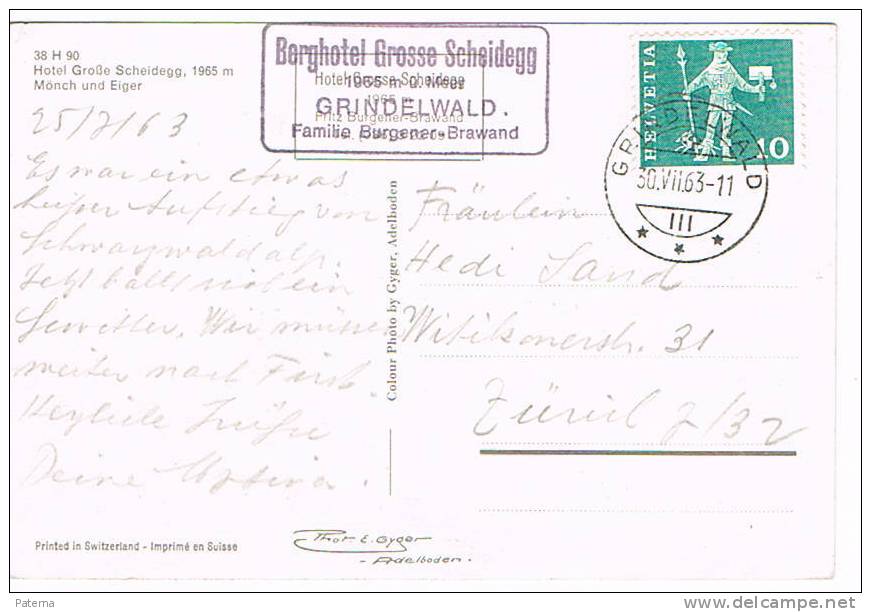 38 H 90
Hotel Große Scheidegg, 1965 m
Mönch und Eiger
25/7/63
Es war ein etwas
heißer Aufstieg von
Schwarzwaldalp.
Jetzt ballt sich ein
Gewitter. Wir müssen
weiter nach First
Herzliche Grüße
Deine
Printed in Switzerland - Imprimé en Suisse
Berghotel Grosse Scheidegg
1965 m ü. Meer
GRINDELWALD.
Familie Burgener-Brawand
Hotel Grosse Scheidegg
1965
Fritz Burgener-Brawand
Colour Photo by Gyger, Adelboden
Phot. E. Gyger
- Adelboden.
HELVETIA
10
GRINDELWALD
30.VII.63-11
Fräulein
Hedi Sand
Witikonerstr. 31
Zürich 7/32
Paterna
www.delcampe.net